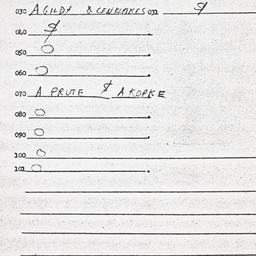 030 A GILDY & CENBAKES 031 $
040 $
050 0
060 0
070 A PRUTE $ A KOPKE
080 0
090 0
100 0
101 0